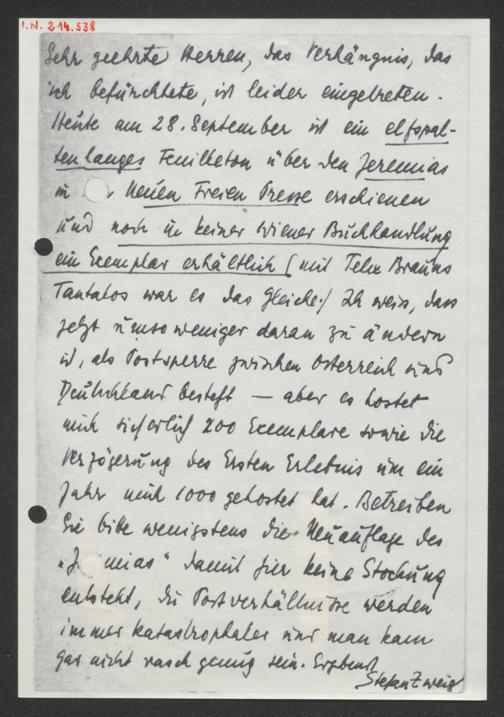 I.N. 214.538
Sehr geehrte Herren, das Verhängnis, das
ich befürchtete, ist leider eingetreten.
Heute am 28. September ist ein elfspal-
tenlanges Feuilleton über den Jeremias
in Neuen Freien Presse erschienen
und noch in keiner Wiener Buchhandlung
ein Exemplar erhältlich (mit Felix Brauns
Tantalos war es das Gleiche!) Ich weiss, dass
jetzt umso weniger daran zu ändern
ist, als Postsperre zwischen Österreich und
Deutschland besteht — aber es kostet
mich sicherlich 200 Exemplare sowie die
Verzögerung des Ersten Erlebnis um ein
Jahr mich 1000 gekostet hat. Betreiben
Sie bitte wenigstens die Neuauflage des
„J mias" damit hier keine Stockung
entsteht, die Postverhältnisse werden
immer katastrophaler und man kann
gar nicht rasch genug sein. Ergebenst
Stefan Zweig